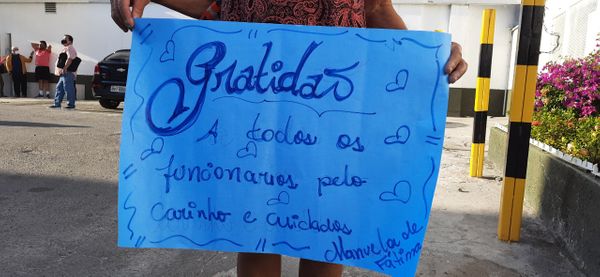 Gratidas
A todos os
funcionarios pelo
Carinho e cuidados
Manuela de
Fátima